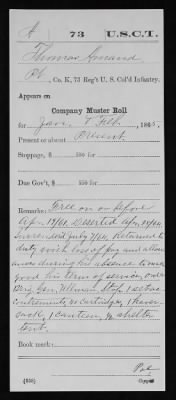 A 73 U.S.C.T.
Thomas Armand
Pvt., Co. K, 73 Reg't U. S. Col'd Infantry.
Appears on
Company Muster Roll
for Jan. & Feb., 1865.
Present or absent Present
Stoppage, $ 100 for
Due Gov't, $ 100 for
Remarks: Free on or before
Apr. 19/61. Deserted Apr. 29/64.
Surrendered July 7/64. Returned to
duty with loss of pay and allow
ances during his absence & make
good his term of service, order
Brig. Gen. Ullman. Stop. 1 set ac
coutrements, 40 cartridges, 1 haver
sack, 1 canteen, ½ shelter
tent.
Book mark:
(858) Copyist.